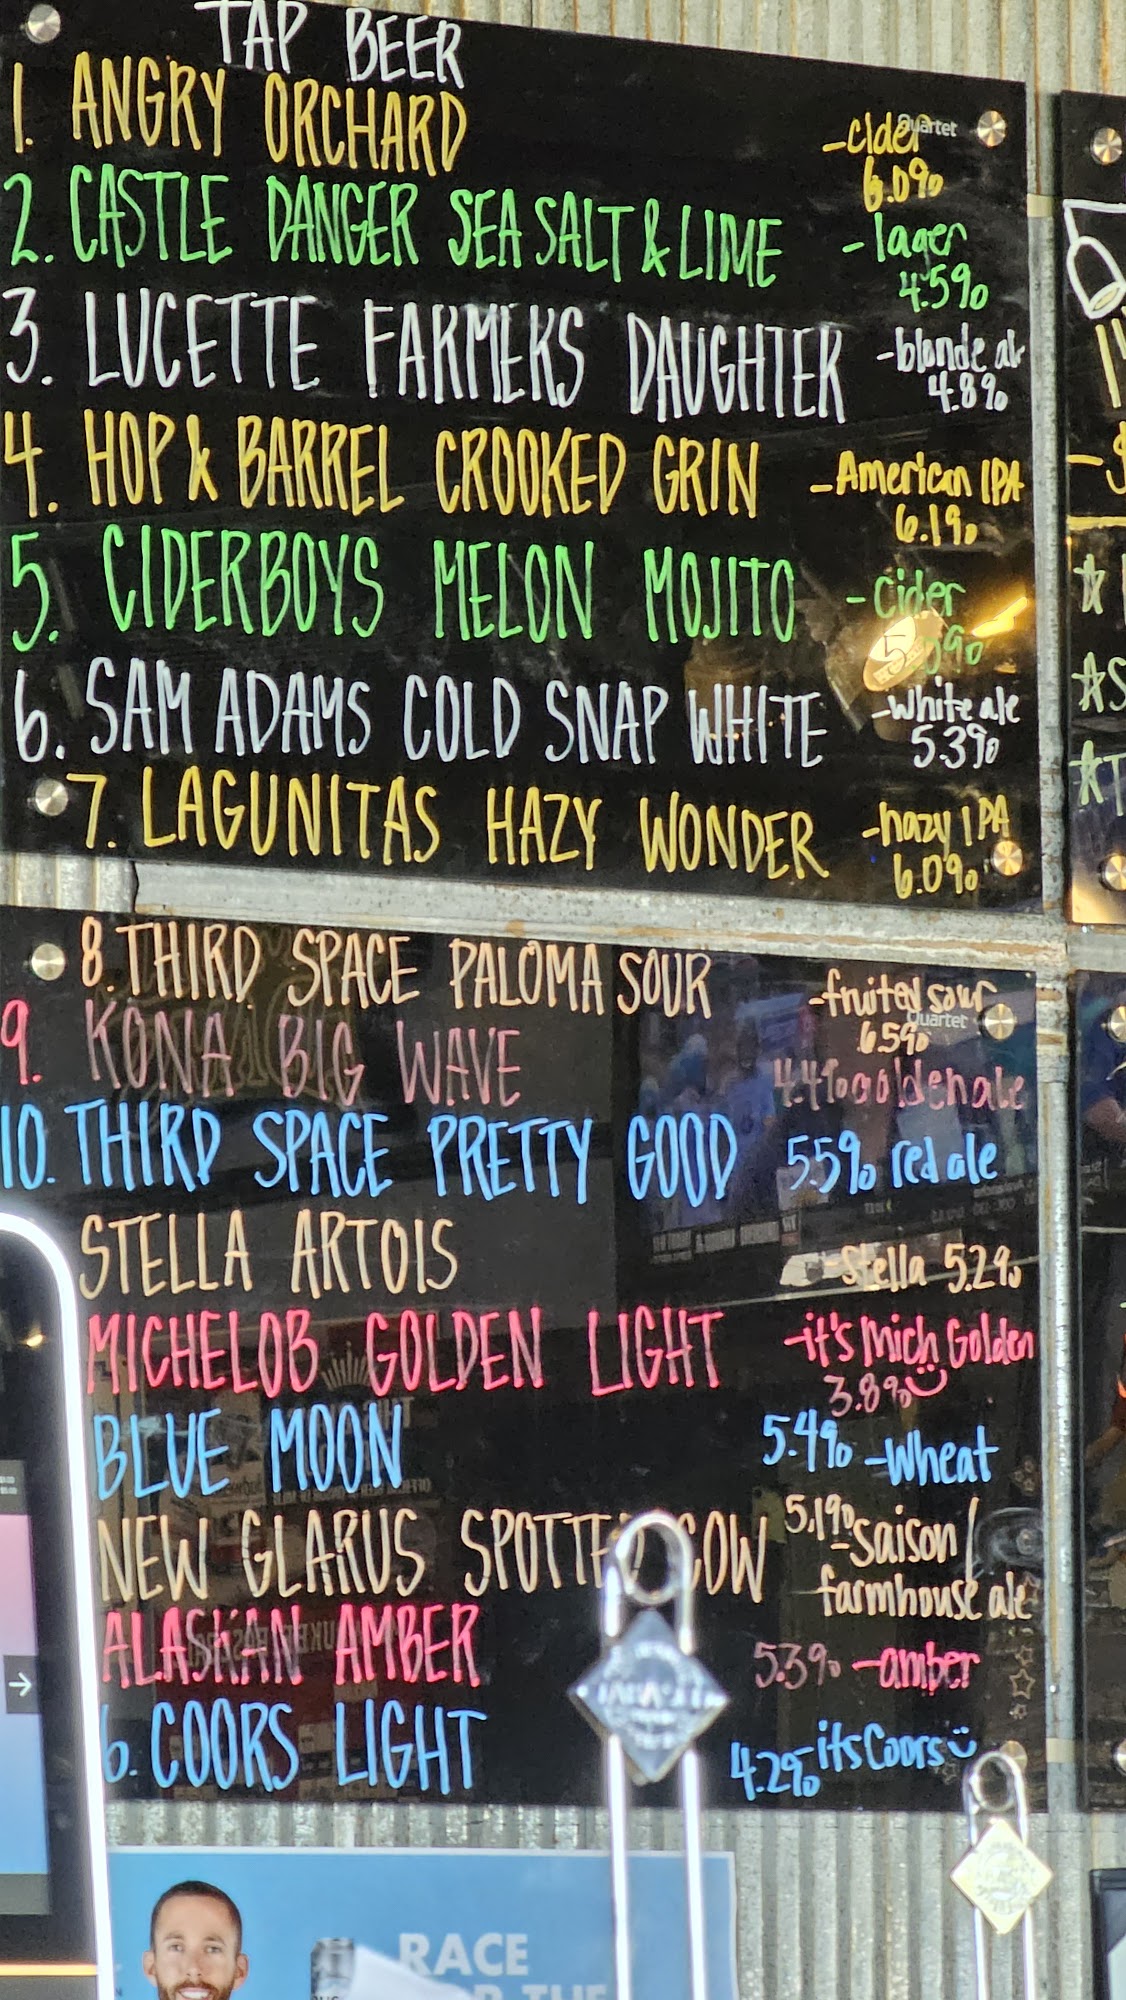 TAP BEER
1. ANGRY ORCHARD -cider
6.0%
Quartet
2. CASTLE DANGER SEA SALT & LIME -lager
4.5%
3. LUCETTE FARMERS DAUGHTER -blonde ale
4.8%
4. HOP & BARREL CROOKED GRIN -American IPA
6.1%
5. CIDERBOYS MELON MOJITO -cider
6. SAM ADAMS COLD SNAP WHITE -white ale
5.3%
7. LAGUNITAS HAZY WONDER -hazy IPA
6.0%
8. THIRD SPACE PALOMA SOUR -fruited sour
6.5%
Quartet
9. KONA BIG WAVE 4.4% golden ale
10. THIRD SPACE PRETTY GOOD 5.5% red ale
STELLA ARTOIS -Stella 5.2%
MICHELOB GOLDEN LIGHT -it's Mich Golden
3.8%
BLUE MOON 5.4% -Wheat
NEW GLARUS SPOTTED COW 5.1% -saison /
farmhouse ale
ALASKAN AMBER 5.3% -amber
6. COORS LIGHT 4.2% its Coors
RACE